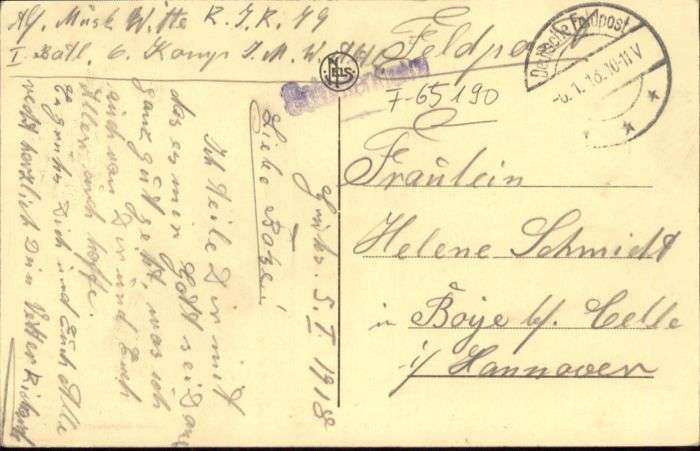 Abs. Musk Witte R.I.R. 79
I Batl. 6. Komp I.M.W.
Feldpost
Deutsche Feldpost
5.1.18.10-11V
NELS
F-65190
Fräulein
Helene Schmidt
in Boye bf. Celle
i/ Hannover
5. I 1918
Liebe
Ich teile Dir mit
das es mir Gott sei Dank
ganz gut geht, was ich
auch von Dir und Euch
Allen auch hoffe.
Es grüßt Dich und Euch Alle
recht herzlich Dein Vetter Richard